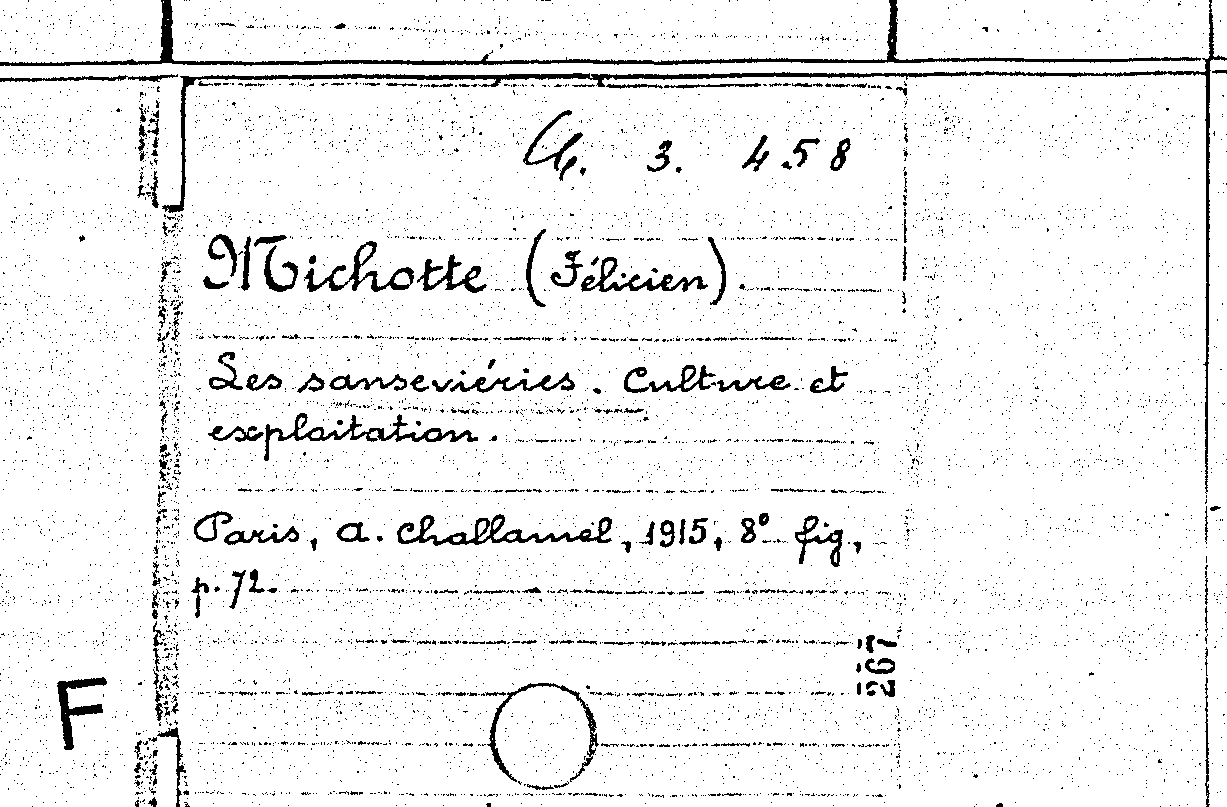 3. 458
Michotte (Félicien).
Les sanseviéries. Culture et
exploitation.
Paris, A. Challamel, 1915, 8° fig,
p. 72.
267
F